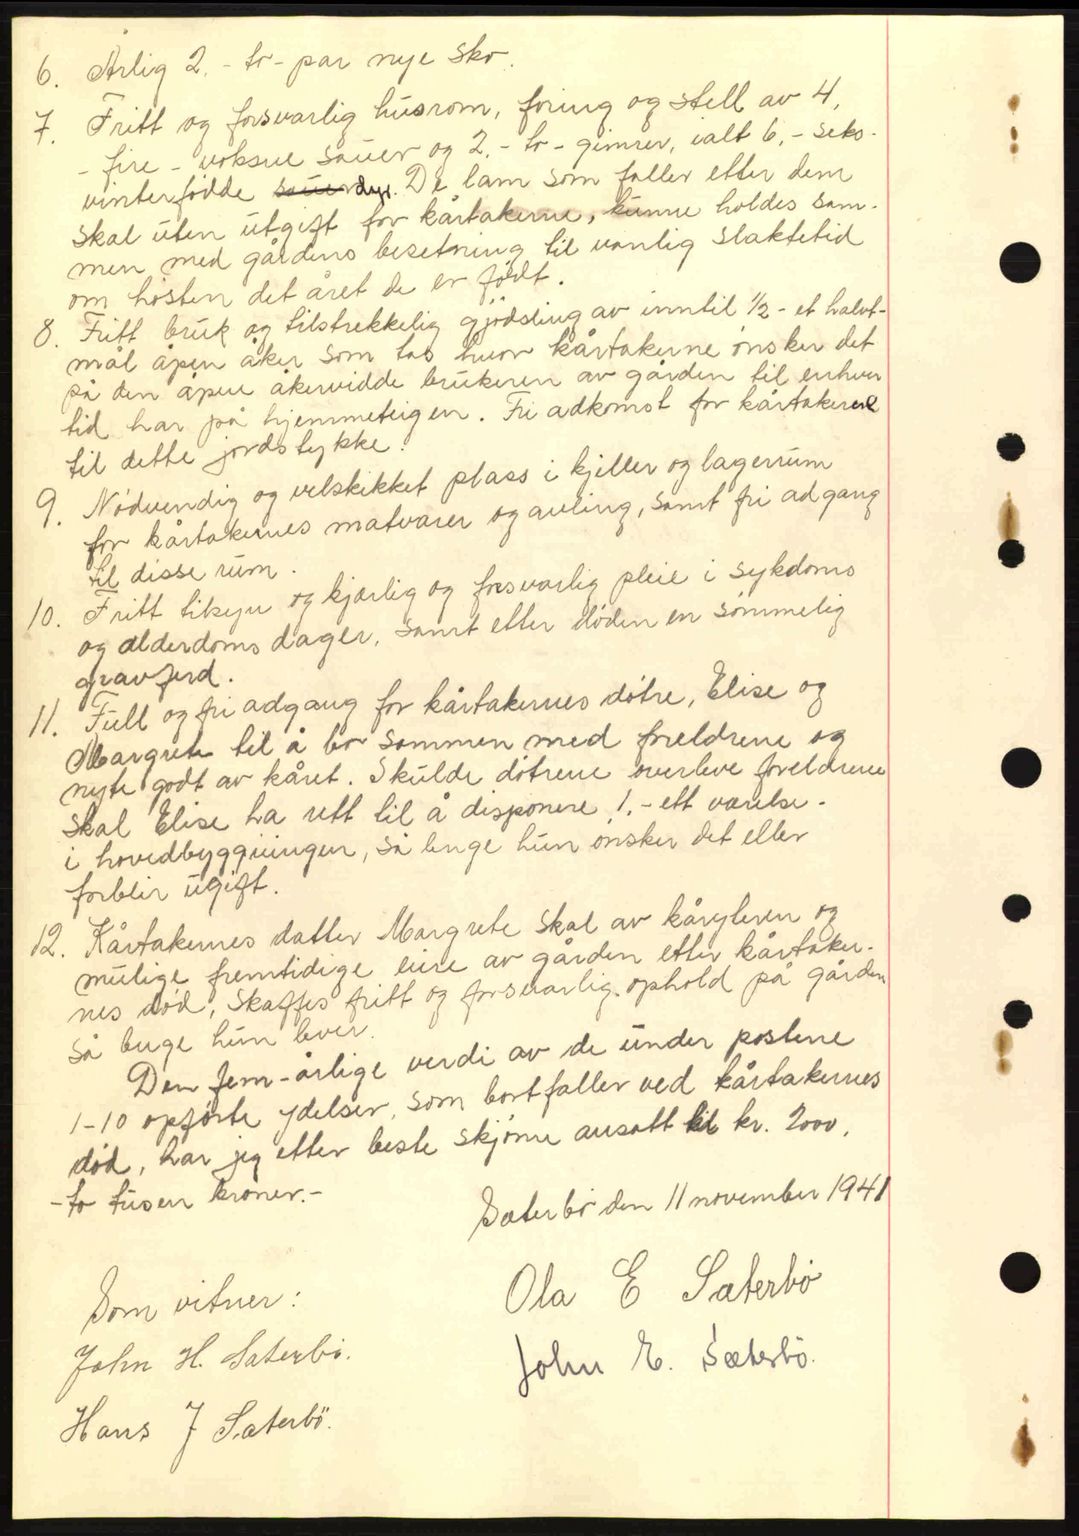 6. Årlig 2.- to- par nye sko.
7. Fritt og forsvarlig husrom, foring og stell av 4,
- fire - voksne sauer og 2.- to- gimrer, ialt 6,- seks-
vinterfødde sauer dyr. De lam som faller etter dem
skal uten utgift for kårtakerne, kunne holdes sam-
men med gårdens besetning til vanlig slaktetid
om høsten det året de er født.
8. Fritt bruk og tilstrekkelig gjødsling av inntil 1/2 - et halvt-
mål åpen åker som tas hvor kårtakerne ønsker det
på den åpne åkervidde brukeren av gården til enhver
tid har på hjemmeteigen. Fri adkomst for kårtakerne
til dette jordstykke.
9. Nødvendig og velskikket plass i kjeller og lagerrum
for kårtakernes matvarer og avling, samt fri adgang
til disse rum.
10. Fritt tilsyn og kjærlig og forsvarlig pleie i sykdoms
og alderdoms dager, samt etter døden en sømmelig
gravferd.
11. Full og fri adgang for kårtakernes døtre, Elise og
Margrete til å bo sammen med foreldrene og
nyte godt av kåret. Skulde døtrene overleve foreldrene
skal Elise ha rett til å disponere 1.- ett værelse-
i hovedbyggningen, så lenge hun ønsker det eller
forblir ugift.
12. Kårtakernes datter Margrete skal av kåryteren og
mulige fremtidige eiere av gården etter kårtaker-
nes død, skaffes fritt og forsvarlig ophold på gården
så lenge hun lever.
Den fem-årlige verdi av de under postene
1-10 opførte ydelser, som bortfaller ved kårtakernes
død, har jeg etter beste skjønn ansatt til kr. 2000,
- to tusen kroner.-
Sæterbø den 11 november 1941
Ola E Sæterbø
Som vitner:
John E. Sæterbø.
John H. Sæterbø.
Hans J Sæterbø.